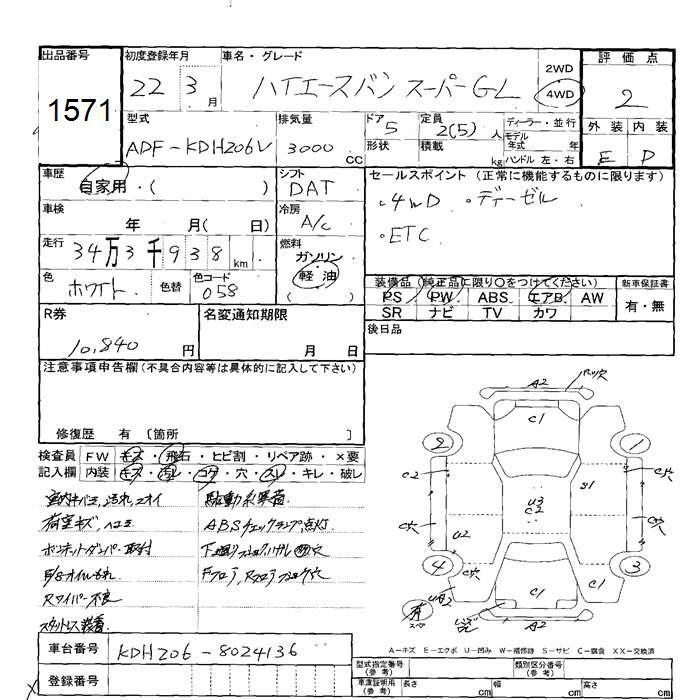 出品番号
1571
初度登録年月
22年3月
車名・グレード
ハイエースバン スーパーGL
2WD
4WD
評価点
2
外装 内装
E D
型式
ADF-KDH206V
排気量
3000 CC
ドア
5
形状
定員
2(5) 人
積載
kg
ディーラー・並行
モデル
年式 年
ハンドル 左・右
車歴
自家用・( )
シフト
DAT
セールスポイント (正常に機能するものに限ります)
・4WD ・ディーゼル
・ETC
車検
年 月( 日)
冷房
A/C
走行
34万3千938 km
燃料
ガソリン
軽・油
( )
色
ホワイト
色替
色コード
058
装備品(純正品に限り○をつけてください)
PS PW ABS エアB AW
SR ナビ TV カワ
新車保証書
有・無
R券
10,840 円
名変通知期限
月 日
後日品
注意事項申告欄(不具合内容等は具体的に記入して下さい)
修復歴 有 〔箇所 〕
検査員 FW キズ・飛石・ヒビ割・リペア跡・×要
記入欄 内装 キズ・汚レ・コゲ・穴・スレ・キレ・破レ
室内キバミ、汚れ、ニオイ
荷室キズ、ヘコミ
ボンネットダンパー取付
E/Gオイルもれ
Rワイパー不良
スタットレス装着
駆動系異音
ABSチェックランプ点灯
下廻り
A2
C1
2
1
C2
C穴
S1
U3
C2
C穴
C穴
U2
4
3
C穴
C1
C1
UA2
有
スペア
A2
A-キズ E-エクボ U-凹み W-補修跡 S-サビ C-腐食 XX-交換済
車台番号
KDH206-8024136
登録番号
型式指定番号
(参考)
類別区分番号
(参考)
車庫証明用
(参考)
長さ cm
幅 cm
高さ cm